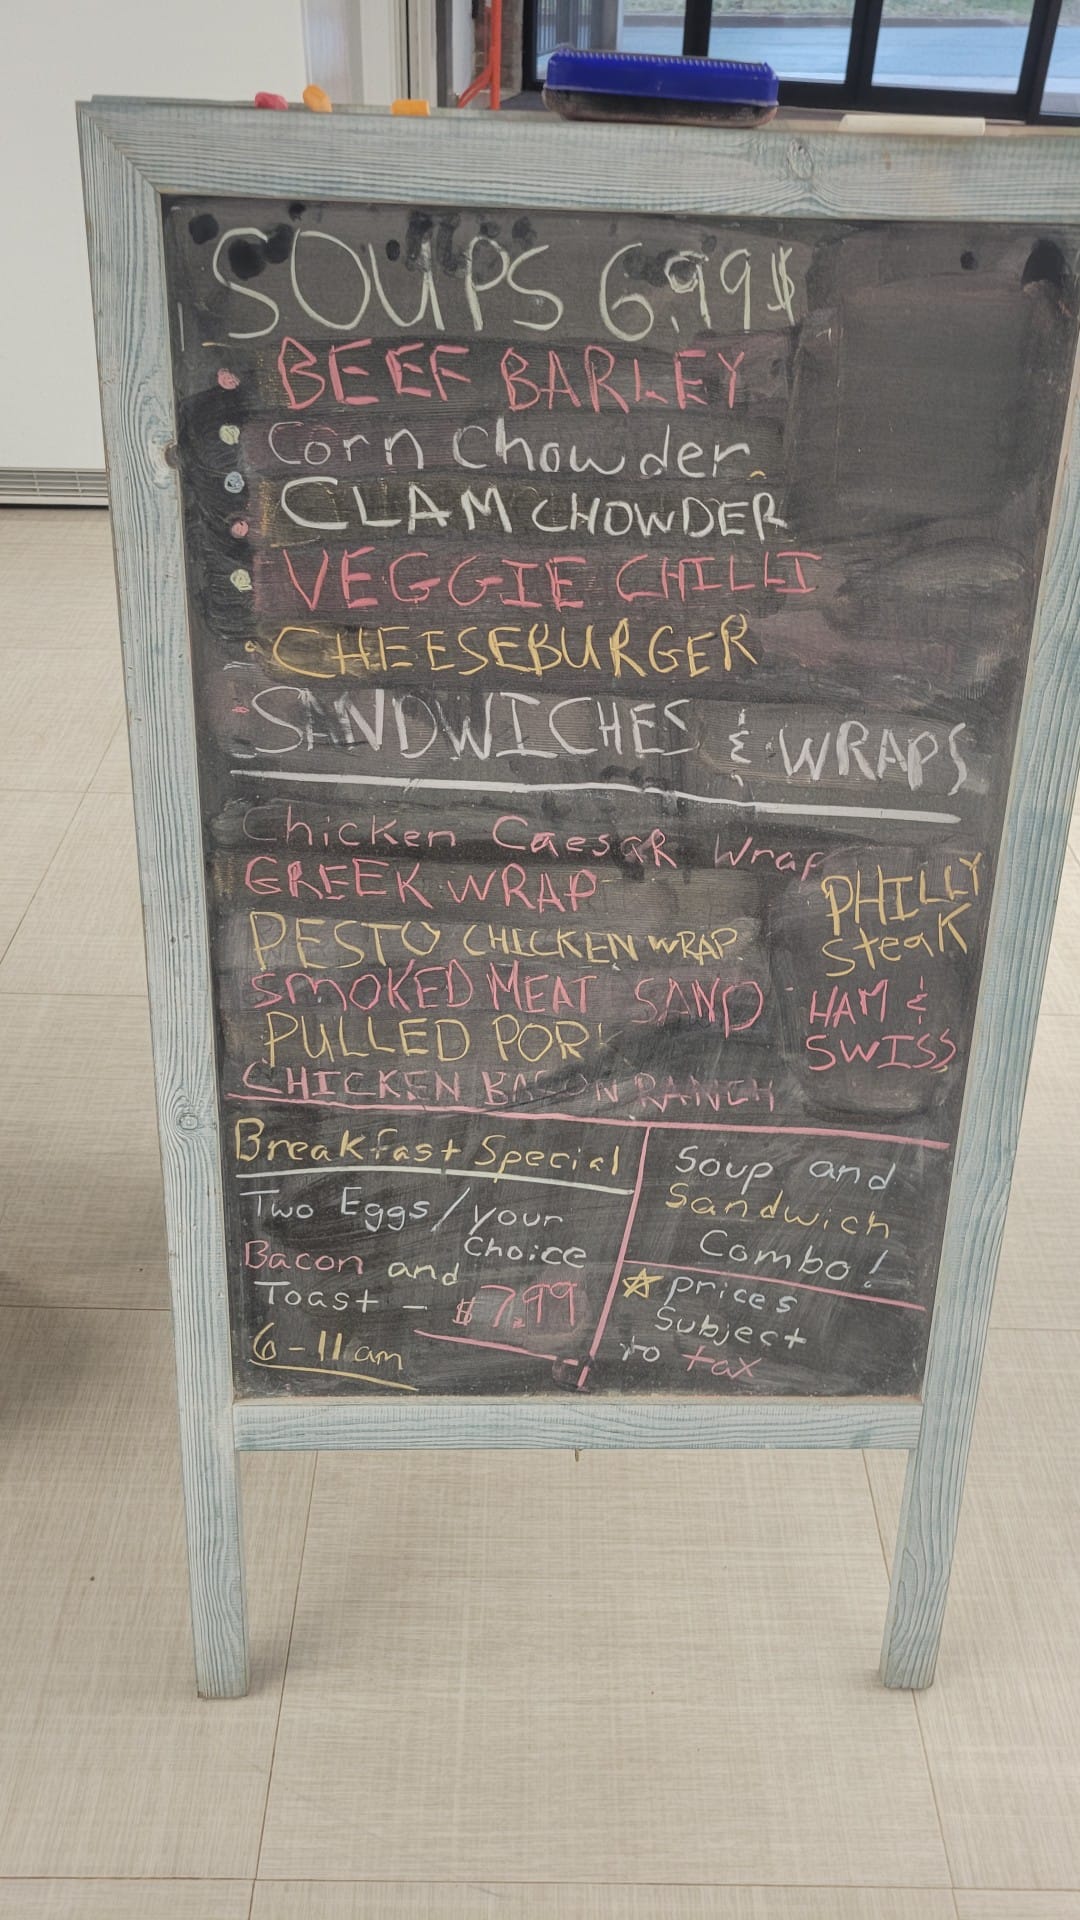 SOUPS 6.99$
BEEF BARLEY
Corn Chowder
CLAM CHOWDER
VEGGIE CHILLI
CHEESEBURGER
SANDWICHES & WRAPS
Chicken CaesaR Wrap
GREEK WRAP
PESTO CHICKEN WRAP
SMOKED MEAT SAND
PULLED POR
CHICKEN BACON RANCH
PHILLY
steak
HAM &
SWISS
Breakfast Special
Two Eggs/your
Choice
Bacon and
Toast - $7.99
6-11am
Soup and
Sandwich
Combo!
☆ prices
Subject
to tax